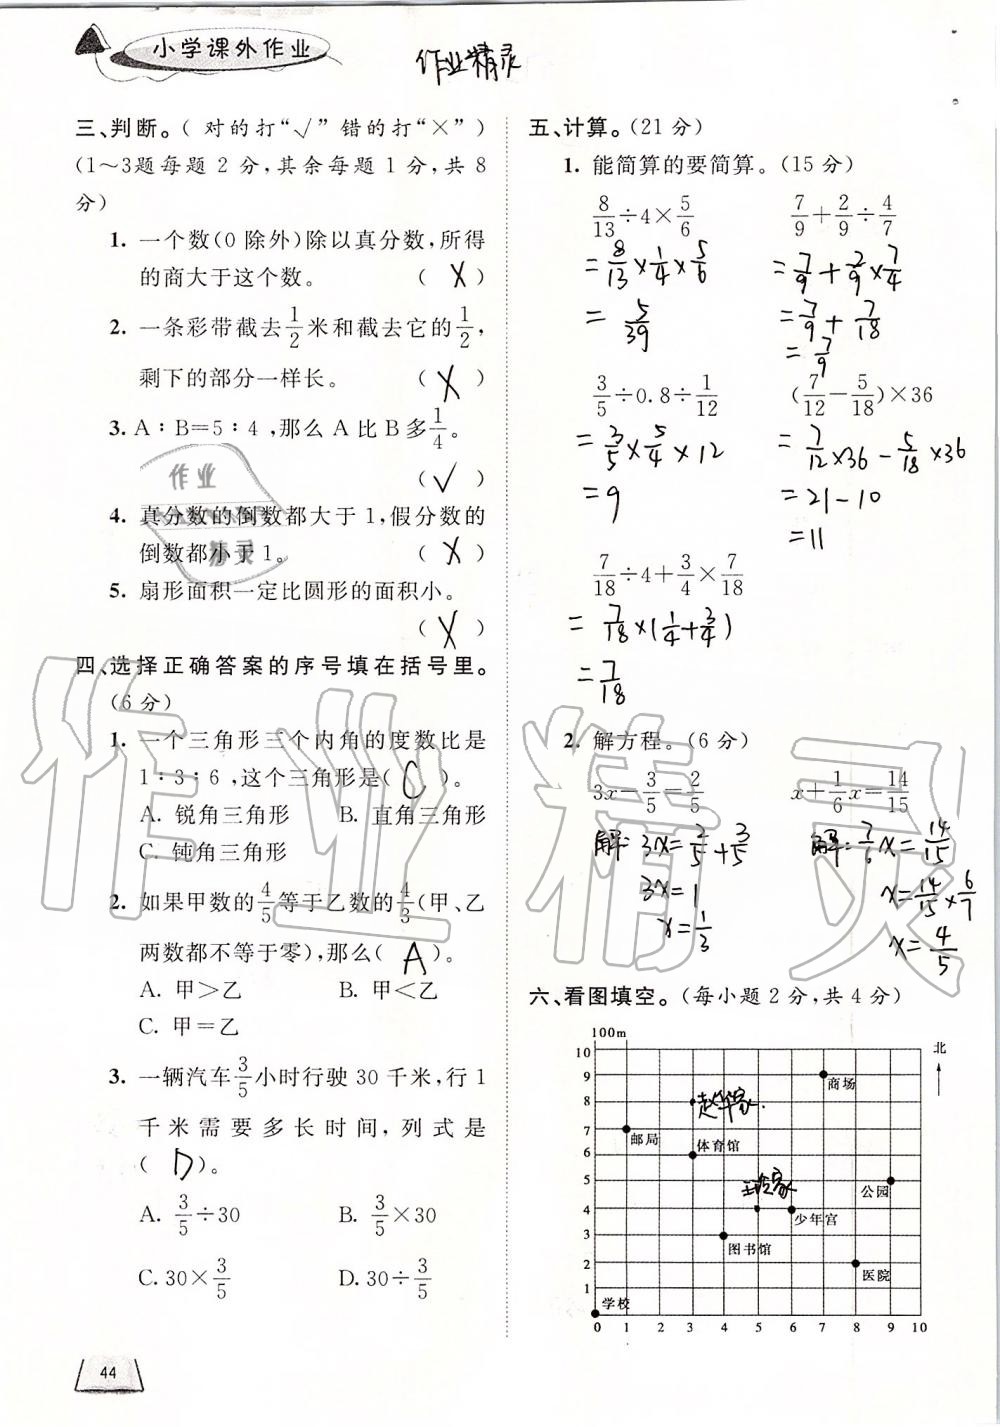 小学课外作业
作业精灵
三、判断。(对的打“√”错的打“×”)
(1～3题每题 2 分,其余每题 1 分,共 8
分)
1. 一个数(0 除外)除以真分数,所得
的商大于这个数。 ( X )
2. 一条彩带截去1/2米和截去它的1/2,
剩下的部分一样长。 ( X )
3. A∶B=5∶4,那么 A 比 B 多1/4。
( √ )
4. 真分数的倒数都大于 1,假分数的
倒数都小于 1。 ( X )
5. 扇形面积一定比圆形的面积小。
( X )
四、选择正确答案的序号填在括号里。
(6 分)
1. 一个三角形三个内角的度数比是
1∶3∶6,这个三角形是( C )。
A. 锐角三角形 B. 直角三角形
C. 钝角三角形
2. 如果甲数的4/5等于乙数的4/3(甲、乙
两数都不等于零),那么( A )。
A. 甲>乙 B. 甲<乙
C. 甲=乙
3. 一辆汽车3/5小时行驶 30 千米,行 1
千米需要多长时间,列式是
( D )。
A. 3/5÷30 B. 3/5×30
C. 30×3/5 D. 30÷3/5
44
五、计算。(21 分)
1. 能简算的要简算。(15 分)
8/13÷4×5/6 7/9+2/9÷4/7
=8/13×1/4×5/6 =7/9+2/9×7/4
=5/39 =7/9+7/18
=7/9
3/5÷0.8÷1/12 (7/12−5/18)×36
=3/5×5/4×12 =7/12×36−5/18×36
=9 =21−10
=11
7/18÷4+3/4×7/18
=7/18×(1/4+3/4)
=7/18
2. 解方程。(6 分)
3x−3/5=2/5 x+1/6x=14/15
解: 3x=2/5+3/5 解: 7/6x=14/15
3x=1 x=14/15×6/7
x=1/3 x=4/5
六、看图填空。(每小题 2 分,共 4 分)
100m
北
10
9 商场
8 赵华家.
7 邮局 体育馆
6
5 公园
4 少年宫
3 图书馆
2 医院
1
学校
0 1 2 3 4 5 6 7 8 9 10
作业
精灵
作业精灵